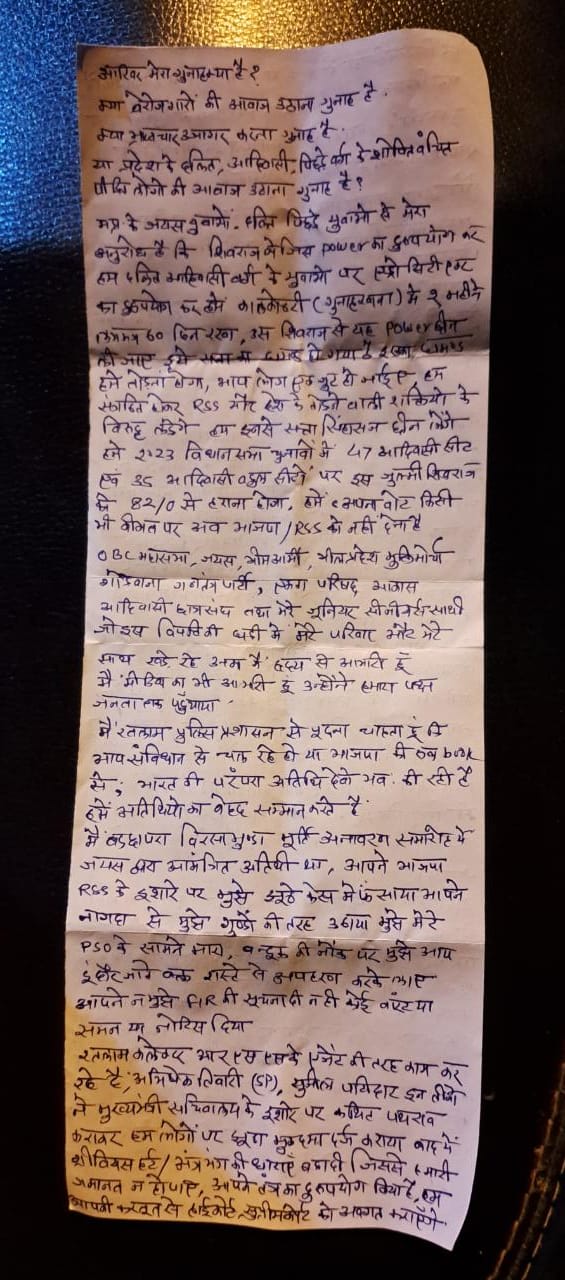 आखिर मेरा गुनाह क्या है ?
क्या बेरोजगारों की आवाज उठाना गुनाह है.
क्या भ्रष्टाचार उजागर करना गुनाह है.
या प्रदेश के दलित, आदिवासी, पिछड़े वर्ग के शोषित वंचित
पीड़ित लोगों की आवाज उठाना गुनाह है?
मप्र के जयस युवाओं, दलित पिछड़े युवाओं से मेरा
अनुरोध है कि शिवराज ने जिस power का दुरुपयोग कर
हम दलित आदिवासी वर्ग के युवाओं पर एट्रोसिटी एक्ट
का दुरुपयोग कर हमें कालकोठरी (गुनाहखाना) में 2 महीने
लगभग 60 दिन रखा, उस शिवराज से यह Power छीन
ली जाए इसे सत्ता का घमंड हो गया है इसका घमंड
हमें तोड़ना होगा, आप लोग एक जुट हो जाईए हम
संगठित होकर RSS और देश के तोड़ने वाली शक्तियों के
विरुद्ध लड़ेंगे हम इनसे सत्ता सिंहासन छीन लेंगे
हमें 2023 विधानसभा चुनावों में 47 आदिवासी सीट
एवं 35 आदिवासी बहुल सीटों पर इस जुल्मी शिवराज
को 82/0 से हराना होगा, हमें अपना वोट किसी
भी कीमत पर अब भाजपा/RSS को नहीं देना है
OBC महासभा, जयस, भीम आर्मी, भीलप्रदेश मुक्तिमोर्चा
गोंडवाना गणतंत्र पार्टी, एकता परिषद आकास
आदिवासी छात्रसंघ तथा मेरे जूनियर सीनीयर्स साथी
जो इस विपत्ति की घड़ी में मेरे परिवार और मेरे
साथ खड़े रहे उनका मैं हृदय से आभारी हूँ
मैं मीडिया का भी आभारी हूं उन्होंने हमारा पक्ष
जनता तक पहुँचाया
मैं रतलाम पुलिस प्रशासन से पूछना चाहता हूं कि
आप संविधान से चल रहे हो या भाजपा की रूल book
से, भारत की परंपरा अतिथि देवो भव: की रही है
हमें अतिथियों का बेहद सम्मान करते है.
मैं धराड़ बिरसा मुण्डा मूर्ति अनावरण समारोह में
जयस द्वारा आमंत्रित अतिथी था, आपने भाजपा
RSS के इशारे पर मुझे झूठे केस में फंसाया आपने
नागदा से मुझे गुण्डों की तरह उठाया मुझे मेरे
PSO के सामने मारा, बन्दूक की नोंक पर मुझे आप
इंदौर जाते वक्त रास्ते से अपहरण करके लाए
आपने न मुझे FIR की सूचना दी न ही कोई वारंट या
समन या नोटिस दिया
रतलाम कलेक्टर आर एस एस के एजेंट की तरह काम कर
रहे है, अभिषेक तिवारी (SP), सुनील पाटीदार इन तीनों
ने मुख्यमंत्री सचिवालय के इशारे पर कथित पथराव
करवाकर हम लोगों पर झूठा मुकदमा दर्ज कराया बाद में
ग्रीवियस हर्ट/ की धाराएं बढ़ा दी जिससे हमारी
जमानत न हो पाए, आपने तंत्र का दुरुपयोग किया है, हम
आपकी करतूत से हाईकोर्ट, सुप्रीमकोर्ट को अवगत कराएंगे.